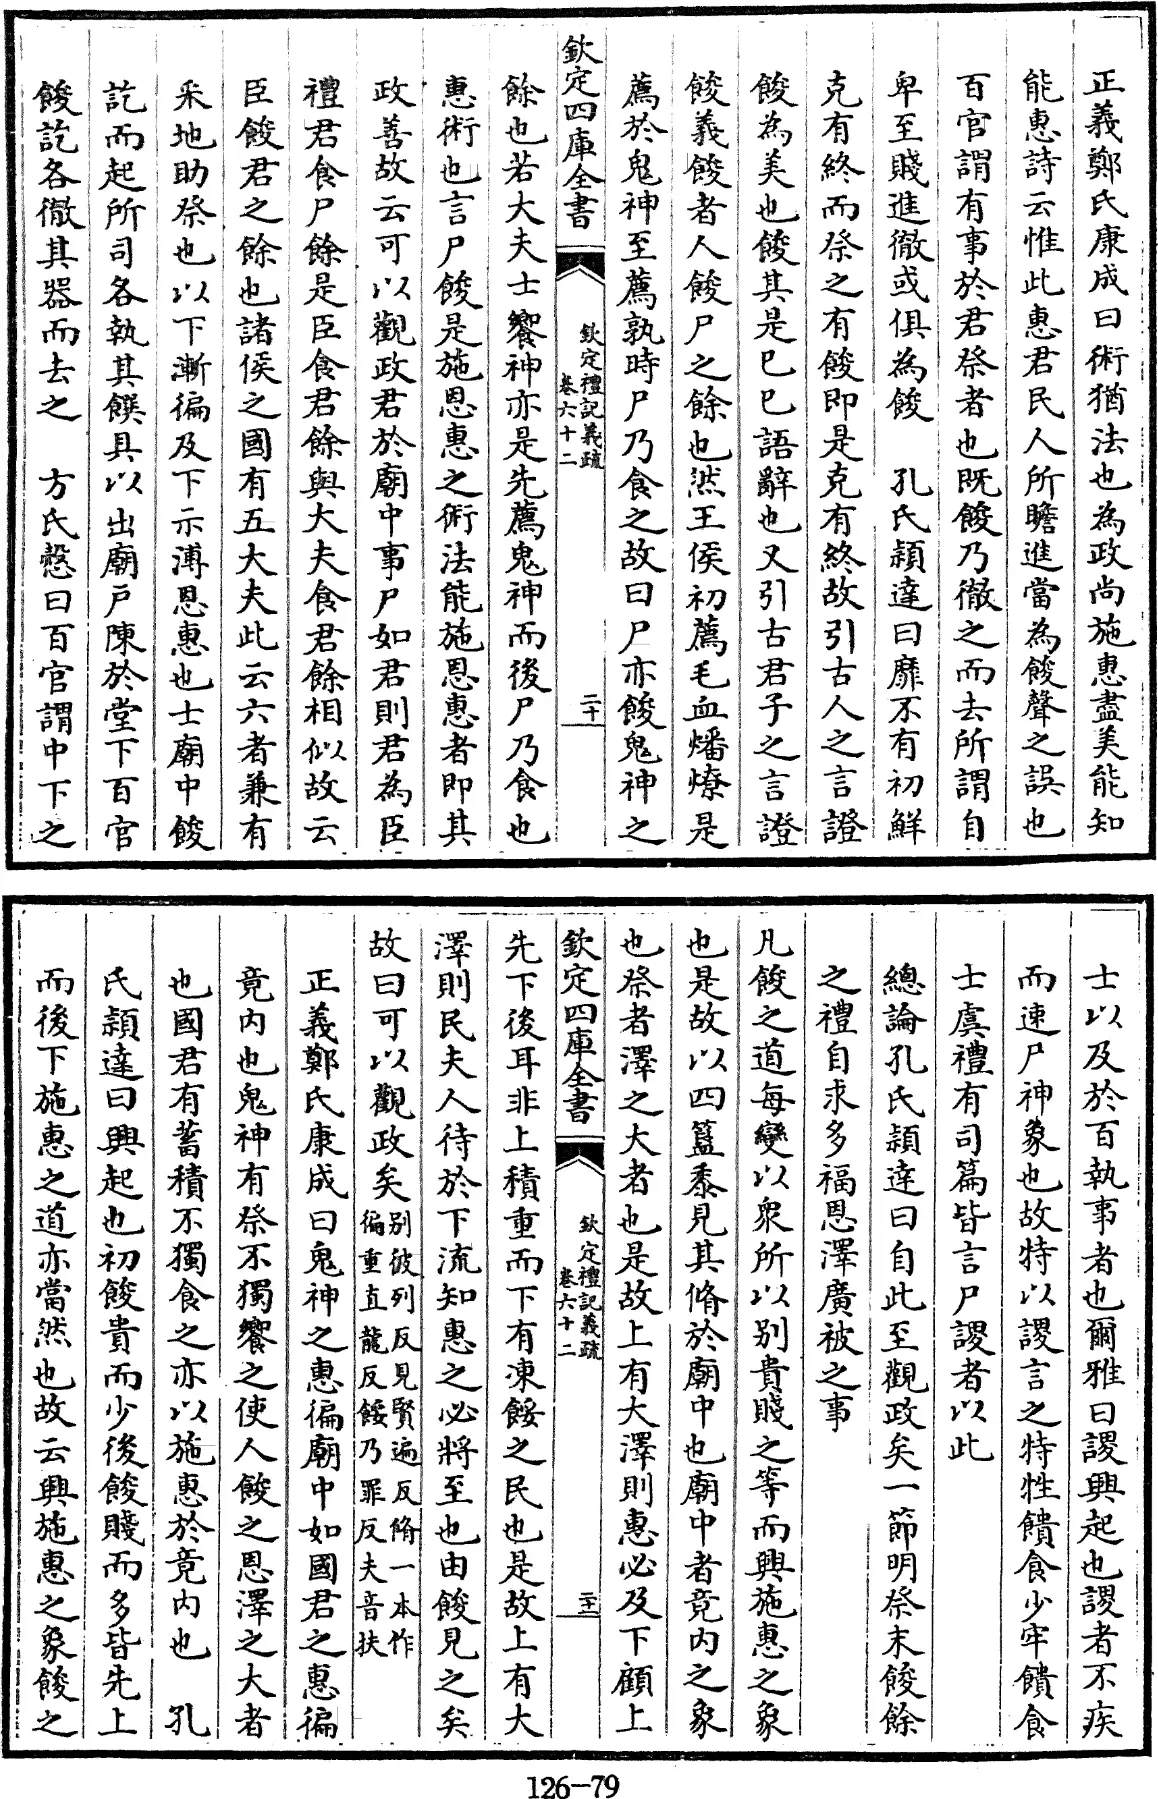 正義鄭氏康成曰術猶法也為政尚施惠盡美能知
能惠詩云惟此惠君民人所瞻進當為餕聲之誤也
百官謂有事於君祭者也既餕乃徹之而去所謂自
卑至賤進徹或俱為餕　孔氏穎達曰靡不有初鮮
克有終而祭之有餕即是克有終故引古人之言證
餕為美也餕其是已已語辭也又引古君子之言證
餕義餕者人餕尸之餘也然王侯初薦毛血燔燎是
薦於鬼神至薦孰時尸乃食之故曰尸亦餕鬼神之
欽定四庫全書
欽定禮記義疏
卷六十二
二十
餘也若大夫士饗神亦是先薦鬼神而後尸乃食也
惠術也言尸餕是施恩惠之術法能施恩惠者即其
政善故云可以觀政君於廟中事尸如君則君為臣
禮君食尸餘是臣食君餘與大夫食君餘相似故云
臣餕君之餘也諸侯之國有五大夫此云六者兼有
采地助祭也以下漸徧及下示溥恩惠也士廟中餕
訖而起所司各執其饌具以出廟戶陳於堂下百官
餕訖各徹其器而去之　方氏慤曰百官謂中下之
士以及於百執事者也爾雅曰謖興起也謖者不疾
而速尸神象也故特以謖言之特牲饋食少牢饋食
士虞禮有司篇皆言尸謖者以此
總論孔氏穎達曰自此至觀政矣一節明祭末餕餘
之禮自求多福恩澤廣被之事
凡餕之道每變以衆所以别貴賤之等而興施惠之象
也是故以四簋黍見其脩於廟中也廟中者竟内之象
也祭者澤之大者也是故上有大澤則惠必及下顧上
欽定四庫全書
欽定禮記義疏
卷六十二
二十一
先下後耳非上積重而下有凍餒之民也是故上有大
澤則民夫人待於下流知惠之必將至也由餕見之矣
故曰可以觀政矣别彼列反見賢遍反脩一本作
徧重直龍反餒乃罪反夫音扶
正義鄭氏康成曰鬼神之惠徧廟中如國君之惠徧
竟内也鬼神有祭不獨饗之使人餕之恩澤之大者
也國君有蓄積不獨食之亦以施惠於竟内也　孔
氏穎達曰興起也初餕貴而少後餕賤而多皆先上
而後下施惠之道亦當然也故云興施惠之象餕之
126-79